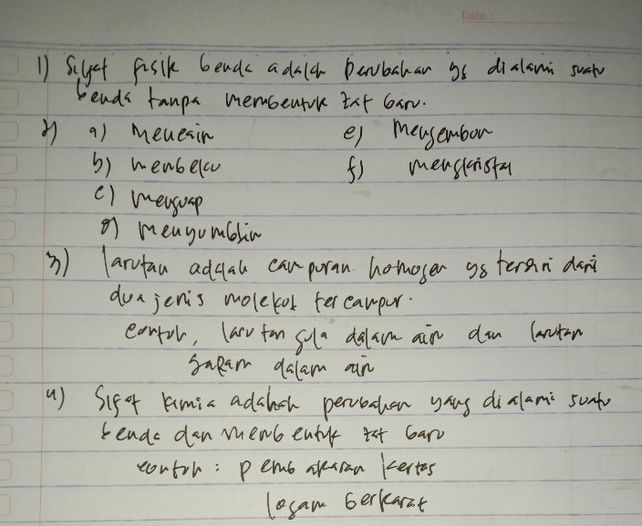 Date :
1) Sifat fisik benda adalah perubahan yg dialami suatu
benda tanpa membentuk zat baru.
2) a) Mencair e) Mengembun
b) membeku f) mengkristal
c) menguap
d) menyumblim
3) larutan adalah campuran homogen yg terdiri dari
dua jenis molekul tercampur.
contoh, larutan gula dalam air dan larutan
garam dalam air
4) Sifat kimia adalah perubahan yang dialami suatu
benda dan membentuk zat baru
contoh : pembakaran kertas
logam berkarat